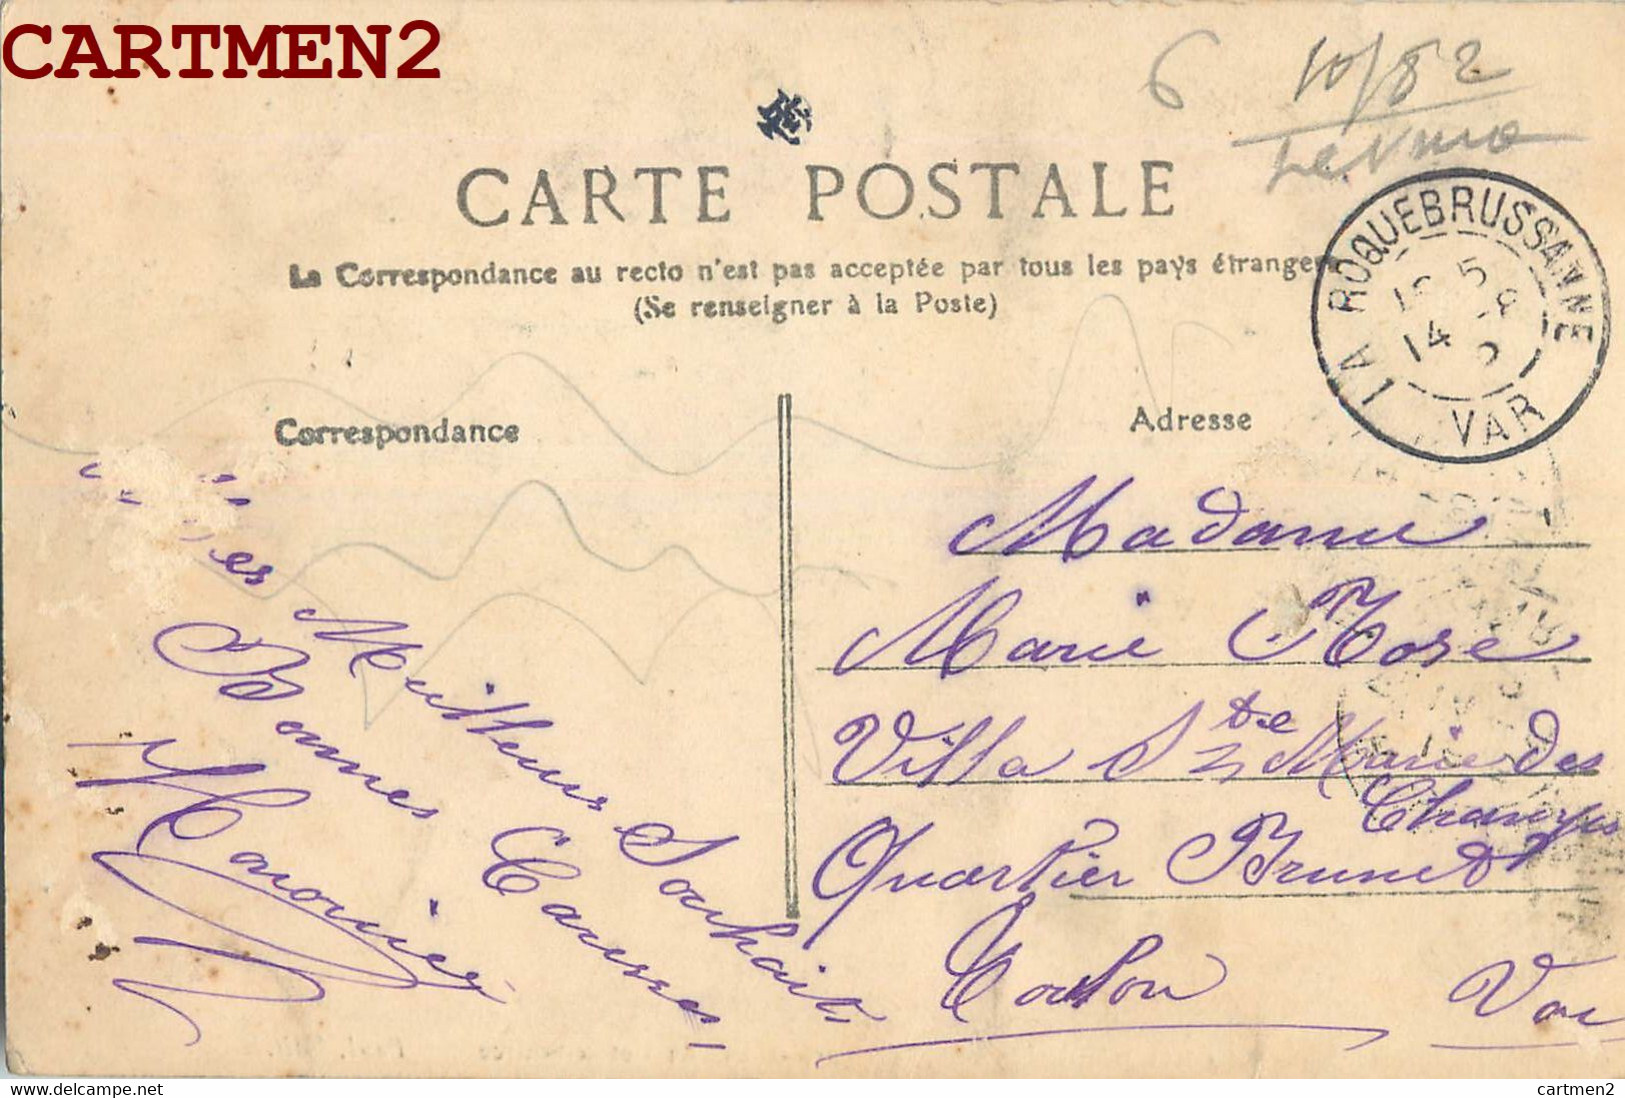 CARTMEN2
6 10/82
CARTE POSTALE
La Correspondance au recto n'est pas acceptée par tous les pays étrangers
(Se renseigner à la Poste)
LA ROQUEBRUSSANNE
5
14
VAR
Correspondance
Adresse
Meilleurs Souhaits
Bonnes Causses
Madame
Marie Rose
Villa Ste Marie des
Champs
Quartier Brunet
Toulon Var
delcampe.net
cartmen2